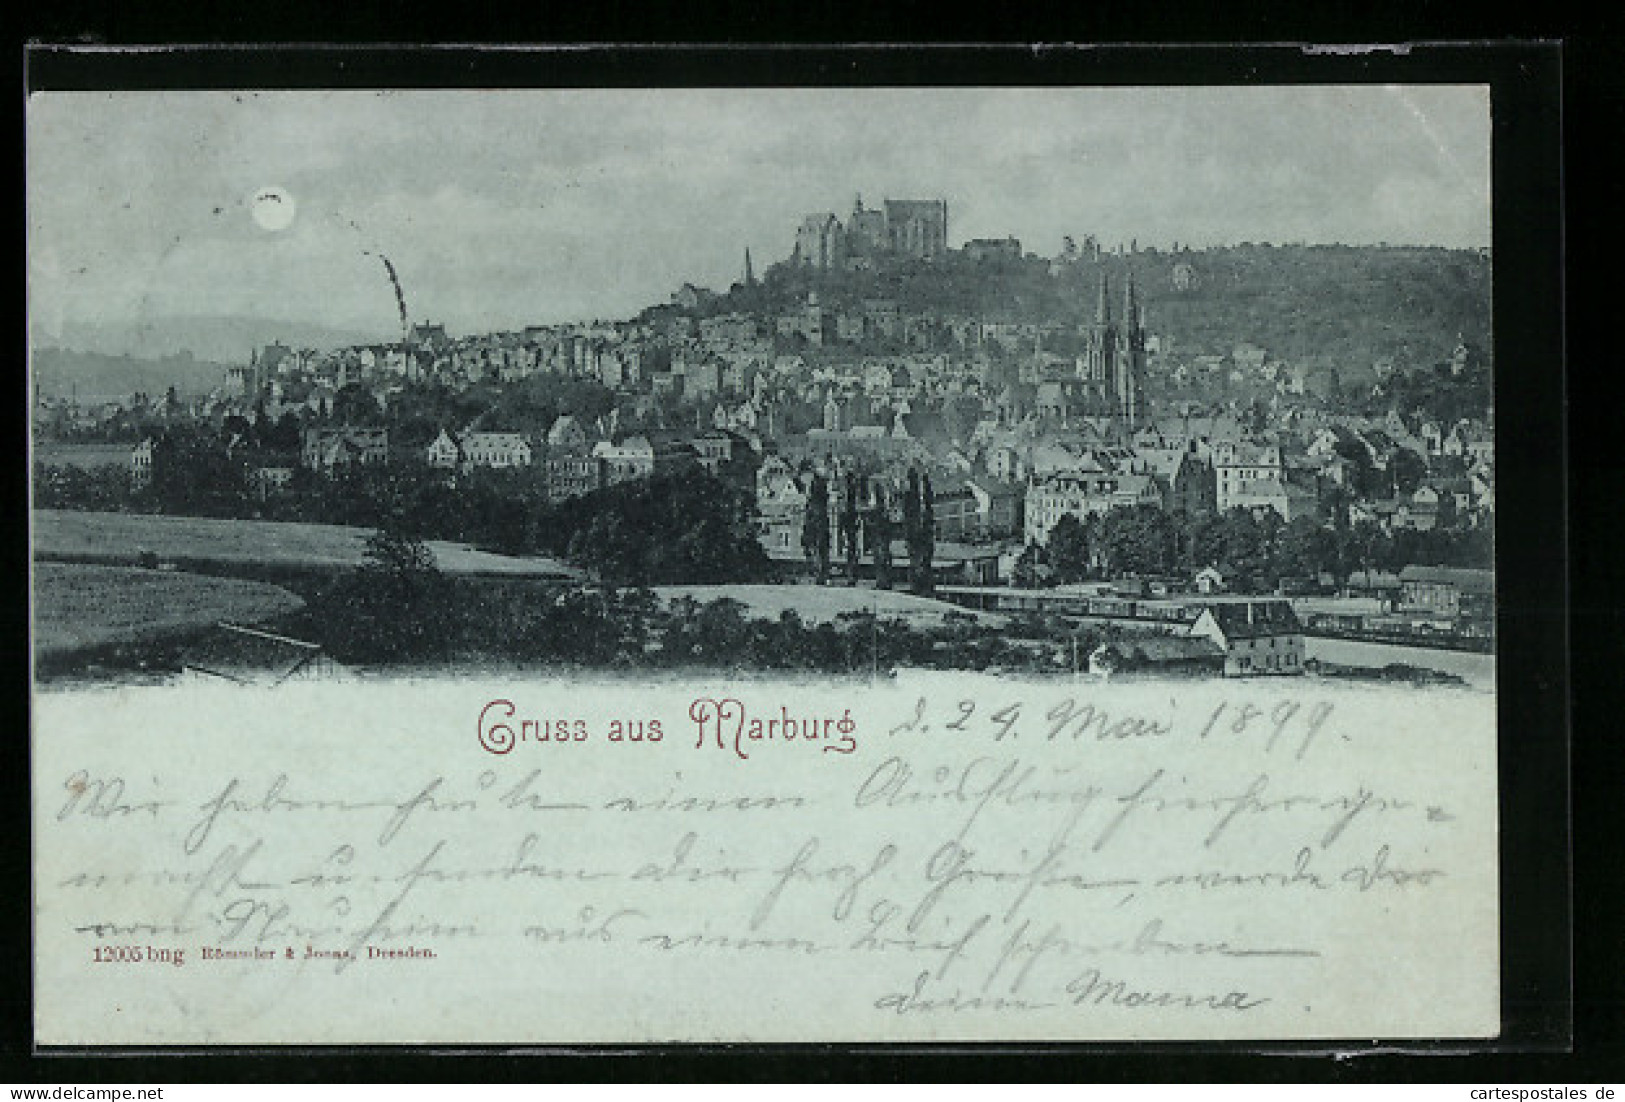 Gruss aus Marburg d. 24. Mai 1899.
Wir haben heute einen Ausflug hierher ge-
macht u. senden dir herzl. Grüße, werde dir
von Nauheim aus einen Brief schreiben
12005 bng Römmler & Jonas, Dresden.
deine Mama.
cartespostales de